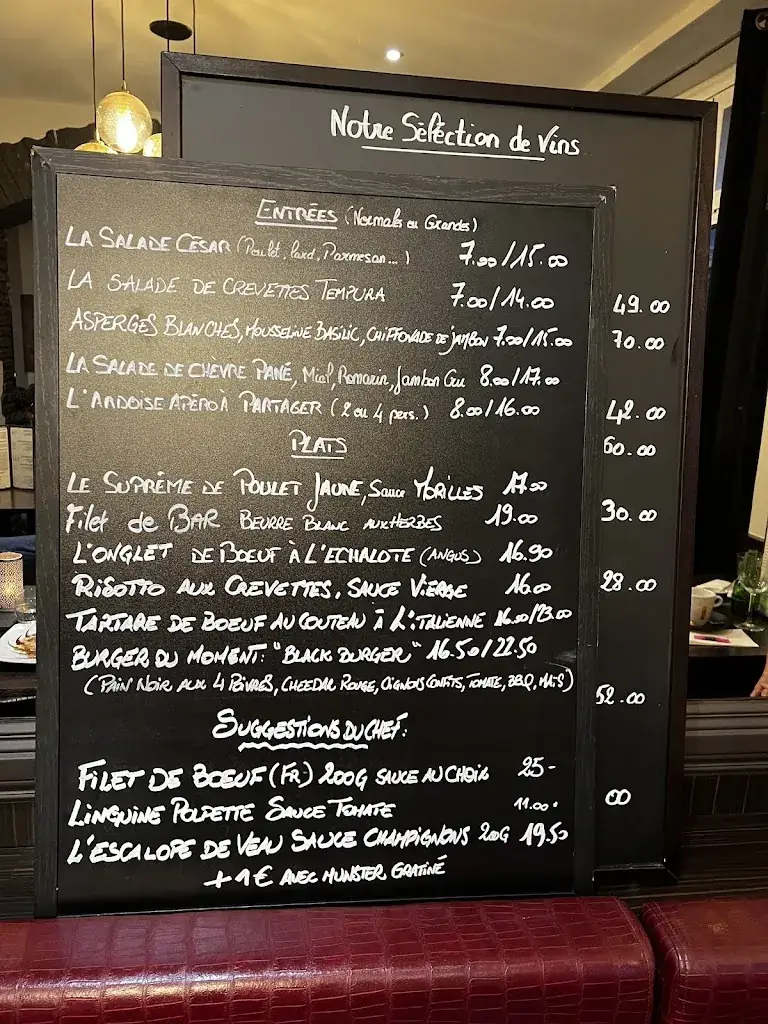 Notre Séléction de Vins
ENTRÉES (Normales ou Grandes)
LA SALADE CÉSAR (Poulet, lard, Parmesan...) 7.00/15.00
LA SALADE DE CREVETTES TEMPURA 7.00/14.00
ASPERGES BLANCHES, MOUSSELINE BASILIC, CHIFFONADE DE JAMBON 7.00/15.00
LA SALADE DE CHEVRE PANÉ, Miel, Romarin, Jambon Cru 8.00/17.00
L'ARDOISE APÉRO À PARTAGER (2 ou 4 pers.) 8.00/16.00
PLATS
LE SUPRÊME DE POULET JAUNE, Sauce MORILLES 17.00
Filet de BAR BEURRE BLANC AUX HERBES 19.00
L'ONGLET DE BOEUF À L'ECHALOTE (ANGUS) 16.90
RISOTTO AUX CREVETTES, SAUCE VIERGE 16.00
TARTARE DE BOEUF AU COUTEAU À L'ITALIENNE 16.00/23.00
BURGER DU MOMENT: "BLACK BURGER" 16.50/22.50
(PAIN NOIR AUX 4 POIVRES, CHEEDAR ROUGE, OIGNONS CONFITS, TOMATE, BBQ, MAÏS)
SUGGESTIONS DU CHEF:
FILET DE BOEUF (FR) 200G SAUCE AU CHOIX 25-
LINGUINE POLPETTE SAUCE TOMATE 11.00
L'ESCALOPE DE VEAU SAUCE CHAMPIGNONS 200G 19.50
+1€ AVEC MUNSTER GRATINÉ
49.00
70.00
42.00
60.00
30.00
28.00
52.00
00